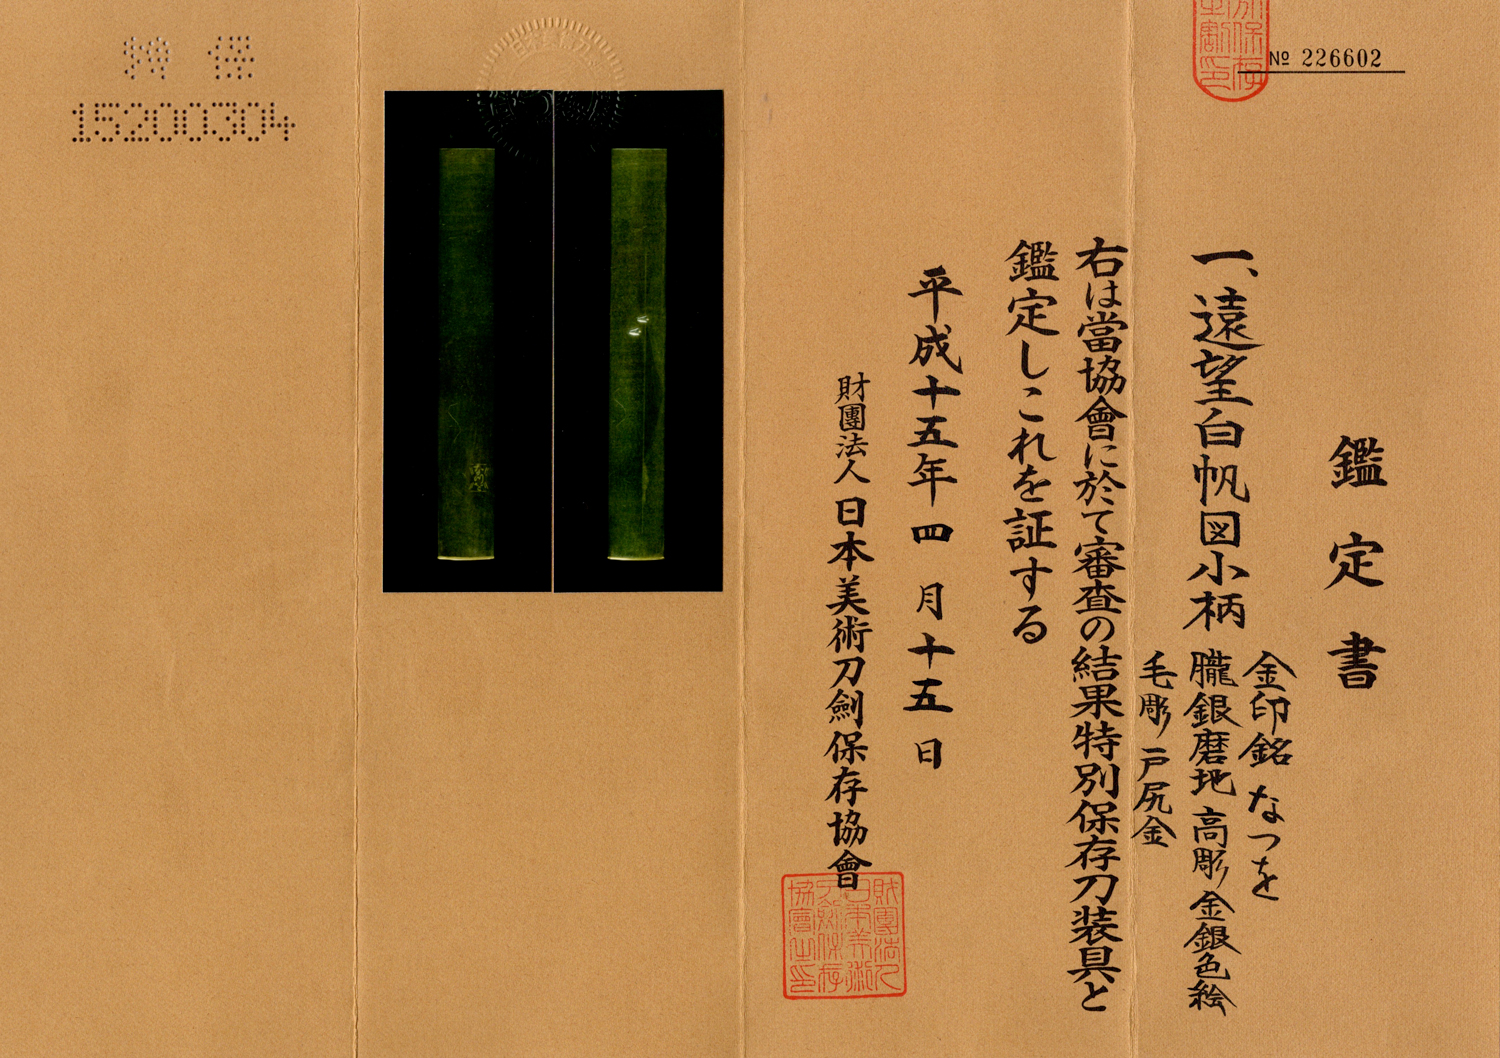 № 226602
鑑定書
一、遠望白帆図小柄
金印銘 なつを
朧銀磨地 高彫 金銀色絵
毛彫 戸尻金
右は當協會に於て審査の結果特別保存刀装具と
鑑定しこれを証する
平成十五年四月十五日
財團法人 日本美術刀劍保存協會
財團法人
日本美術
刀劍保存
協會之印
特 保
15200304